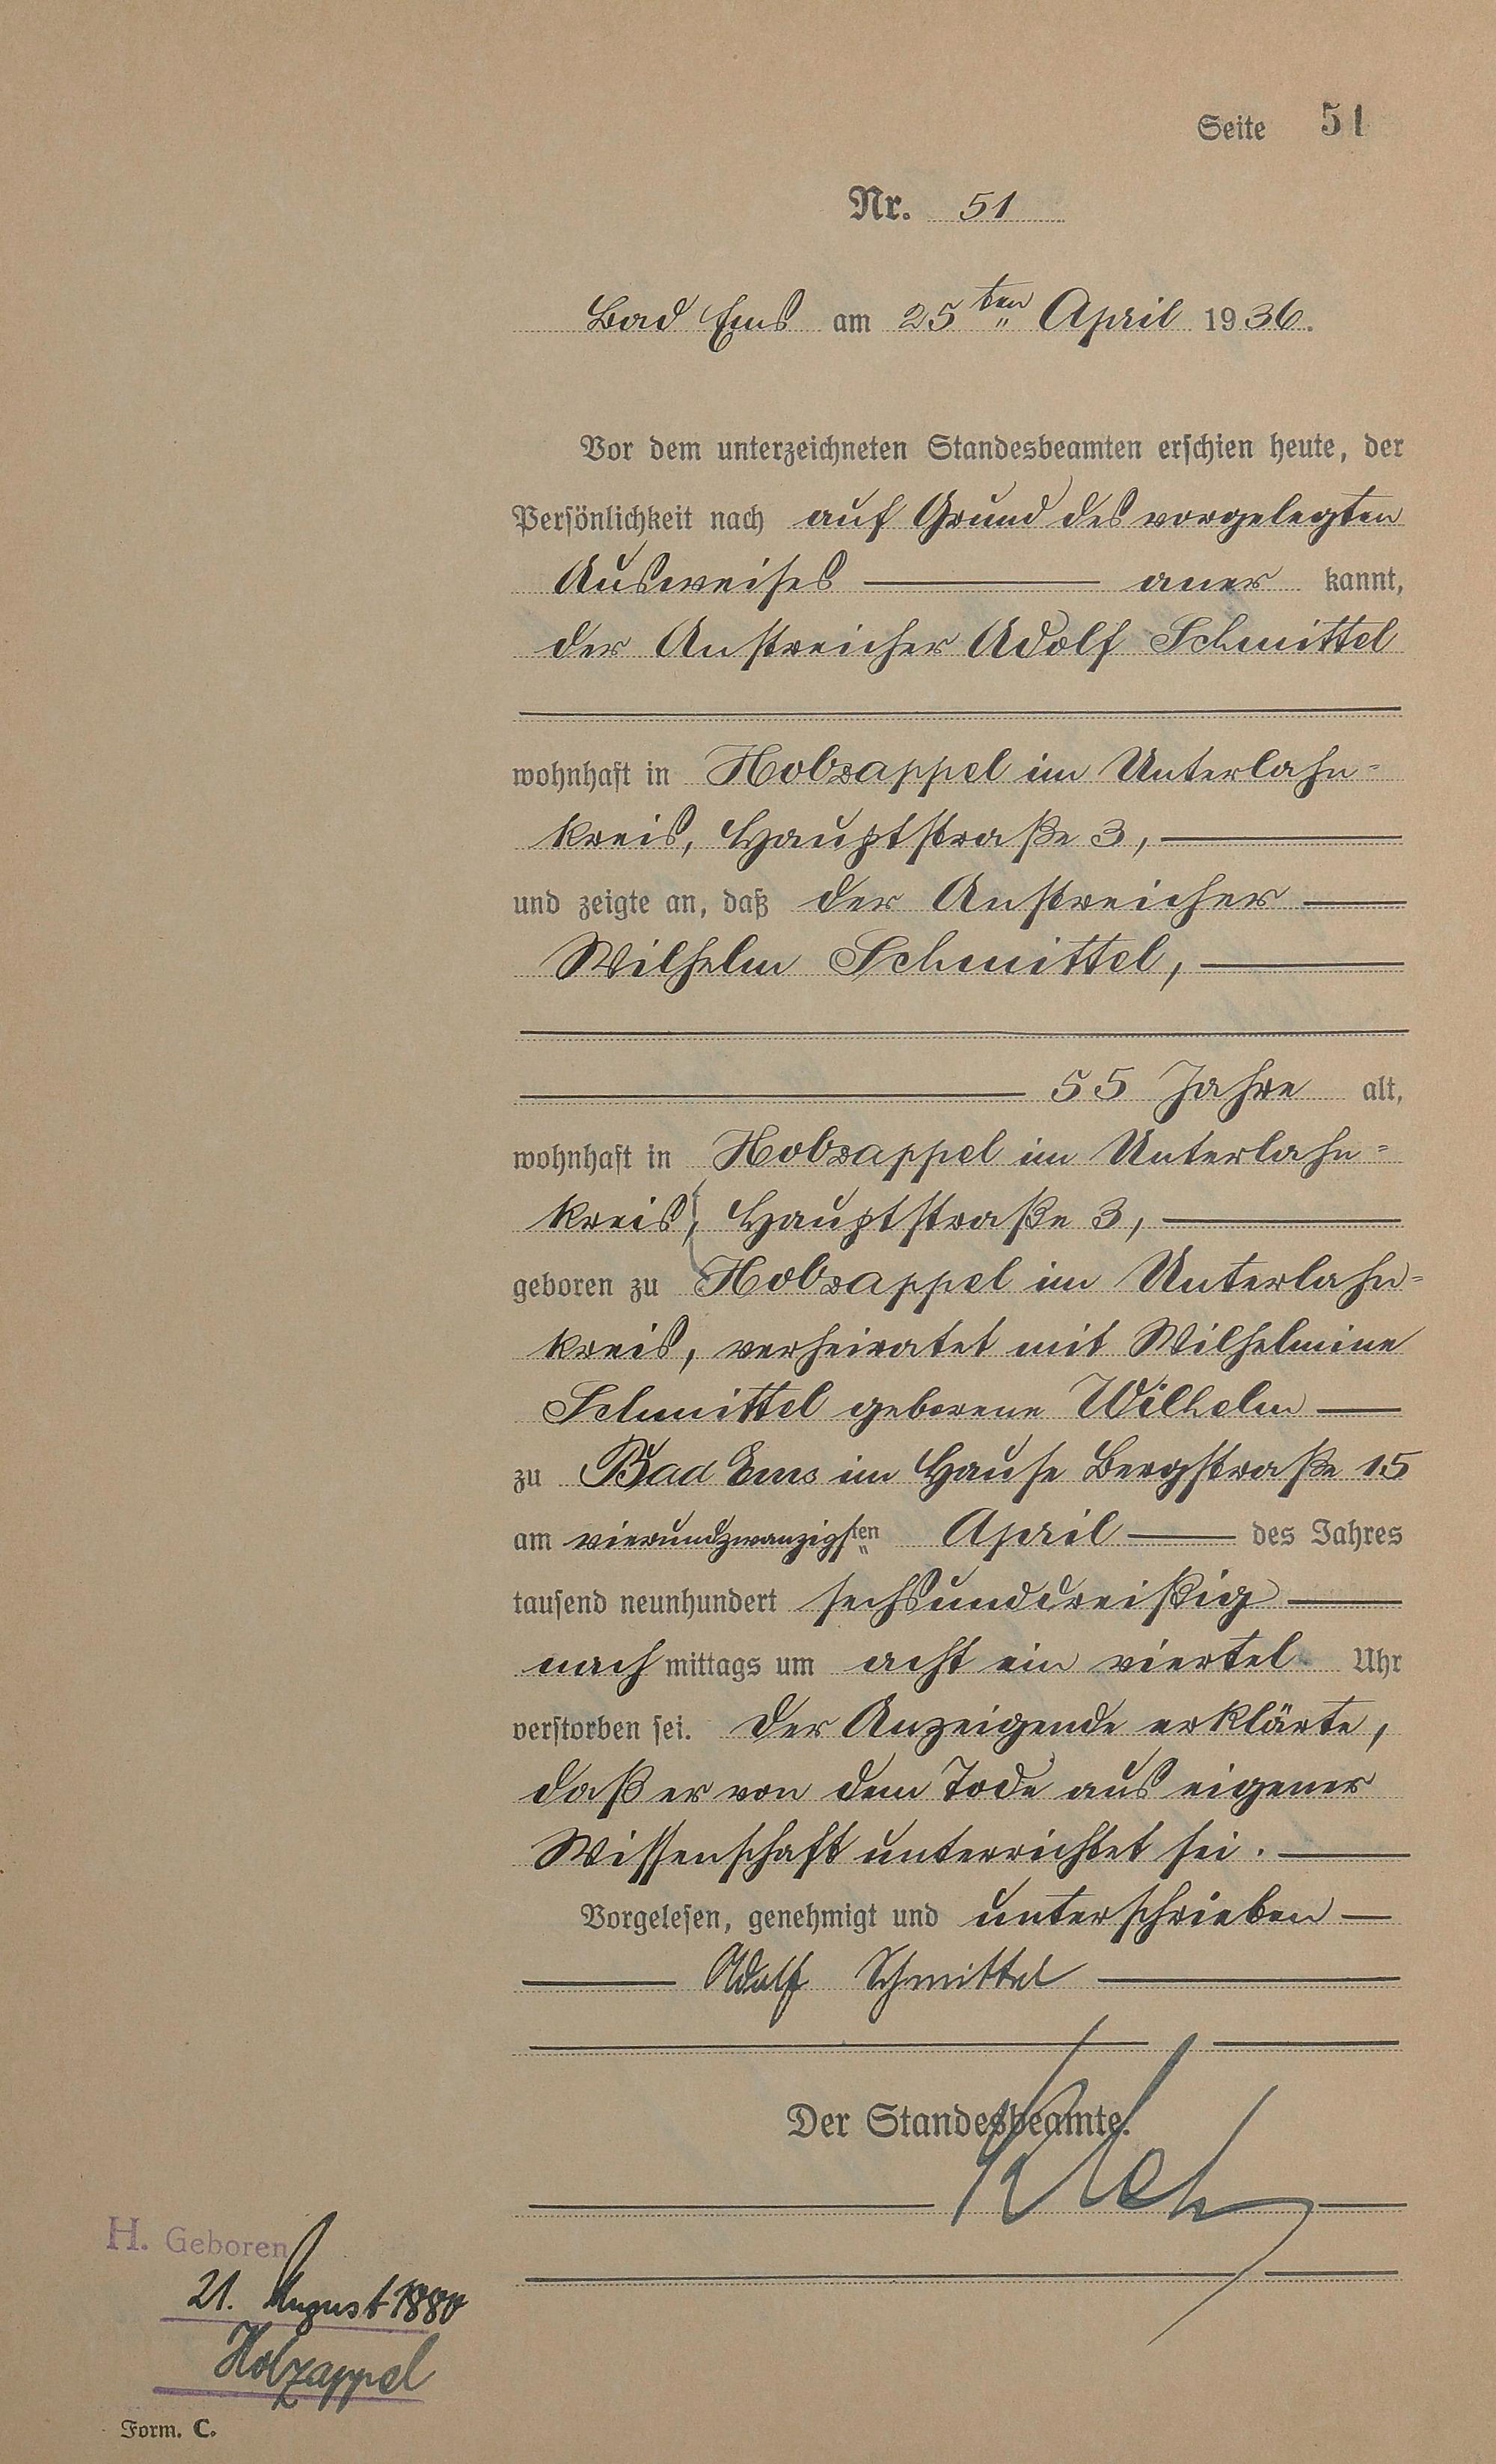 Seite 51
Nr. 51
Bad Ems am 25ten April 1936.
Vor dem unterzeichneten Standesbeamten erschien heute, der
Persönlichkeit nach auf Grund des vorgelegten
Ausweises aner kannt,
der Anstreicher Adolf Schmittel
wohnhaft in Holzappel im Unterlahn=
kreis, Hauptstraße 3,
und zeigte an, daß der Anstreicher
Wilhelm Schmittel,
55 Jahre alt,
wohnhaft in Holzappel im Unterlahn=
kreis, Hauptstraße 3,
geboren zu Holzappel im Unterlahn=
kreis, verheiratet mit Wilhelmine
Schmittel geborene Wilhelm
zu Bad Ems im Hause Bergstraße 15
am vierundzwanzigsten April des Jahres
tausend neunhundert sechsunddreißig
nach mittags um acht ein viertel Uhr
verstorben sei. Der Anzeigende erklärte,
daß er von dem Tode aus eigener
Wissenschaft unterrichtet sei.
Vorgelesen, genehmigt und unterschrieben
Adolf Schmittel
Der Standesbeamte.
H. Geboren
21. August 1880
Holzappel
Form. C.